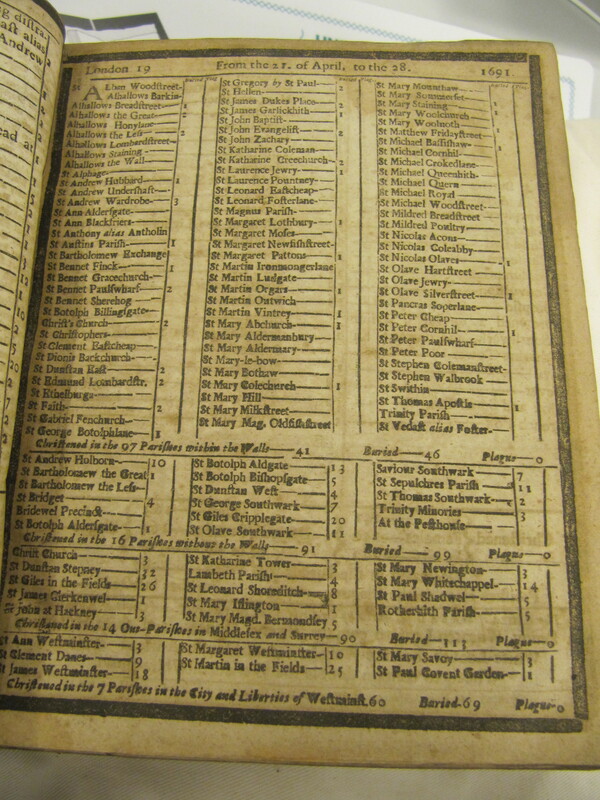 London 19 From the 21. of April, to the 28. 1691.
St Alban Woodstreet
Alhallows Barkin
Alhallows Breadstreet 1
Alhallows the Great 2
Alhallows Honylane
Alhallows the Less 2
Alhallows Lombardstreet
Alhallows Staining
Alhallows the Wall
St Alphage
St Andrew Hubbard 1
St Andrew Undershaft
St Andrew Wardrobe 3
St Ann Aldersgate
St Ann Blackfriers
St Anthony alias Antholin
St Austins Parish 1
St Bartholomew Exchange
St Bennet Finck 1
St Bennet Gracechurch
St Bennet Paulswharf 2
St Bennet Sherehog
St Botolph Billingsgate
Christ's Church 2
St Christophers
St Clement Eastcheap
St Dionis Backchurch
St Dunstan East 2
St Edmund Lombardstr. 2
St Ethelburga
St Faith 2
St Gabriel Fenchurch
St George Botolphlane 1
St Gregory by St Paul 2
St Hellen
St James Dukes Place 2
St James Garlickhith 1
St John Baptist
St John Evangelist 2
St John Zachary
St Katharine Coleman
St Katharine Creechurch 2
St Laurence Jewry 1
St Laurence Pountney
St Leonard Eastcheap
St Leonard Fosterlane
St Magnus Parish
St Margaret Lothbury 1
St Margaret Moses
St Margaret Newfishstreet
St Margaret Pattons 1
St Martin Ironmongerlane
St Martin Ludgate
St Martin Orgars 1
St Martin Outwich
St Martin Vintrey 1
St Mary Abchurch 1
St Mary Aldermanbury
St Mary Aldermary
St Mary-le-bow
St Mary Bothaw
St Mary Colechurch 1
St Mary Hill
St Mary Milkstreet
St Mary Mag. Oldfishstreet
St Mary Mounthaw
St Mary Summerset
St Mary Staining
St Mary Woolchurch
St Mary Woolnoth
St Matthew Fridaystreet
St Michael Bassishaw
St Michael Cornhil
St Michael Crokedlane
St Michael Queenhith
St Michael Quern
St Michael Royal
St Michael Woodstreet
St Mildred Breadstreet
St Mildred Poultry
St Nicolas Acons
St Nicolas Coleabby
St Nicolas Olaves 1
St Olave Hartstreet
St Olave Jewry
St Olave Silverstreet 1
St Pancras Soperlane
St Peter Cheap
St Peter Cornhil 1
St Peter Paulswharf
St Peter Poor
St Stephen Colemanstreet
St Stephen Walbrook
St Swithin
St Thomas Apostle 1
Trinity Parish
St Vedast alias Foster
Christened in the 97 Parishes within the Walls 41 Buried 46 Plague 0
St Andrew Holborn 10
St Bartholomew the Great 1
St Bartholomew the Less
St Bridget 4
Bridewel Precinct
St Botolph Aldersgate 1
St Botolph Aldgate 13
St Botolph Bishopsgate 5
St Dunstan West 4
St George Southwark 7
St Giles Cripplegate 20
St Olave Southwark 11
Saviour Southwark 7
St Sepulchres Parish 11
St Thomas Southwark 2
Trinity Minories 3
At the Pesthouse
Christened in the 16 Parishes without the Walls 91 Buried 99 Plague 0
Christ Church 3
St Dunstan Stepney 32
St Giles in the Fields 26
St James Clerkenwel 1
St John at Hackney 3
St Katharine Tower 3
Lambeth Parish 4
St Leonard Shoreditch 8
St Mary Islington 1
St Mary Magd. Bermondsey 5
St Mary Newington 3
St Mary Whitechappel 14
St Paul Shadwel 5
Rotherhith Parish 5
Christened in the 14 Out-Parishes in Middlesex and Surrey 90 Buried 113 Plague 0
St Ann Westminster 3
St Clement Danes 9
St James Westminster 18
St Margaret Westminster 10
St Martin in the Fields 25
St Mary Savoy 3
St Paul Covent Garden 1
Christened in the 7 Parishes in the City and Liberties of Westminst. 60 Buried 69 Plague 0